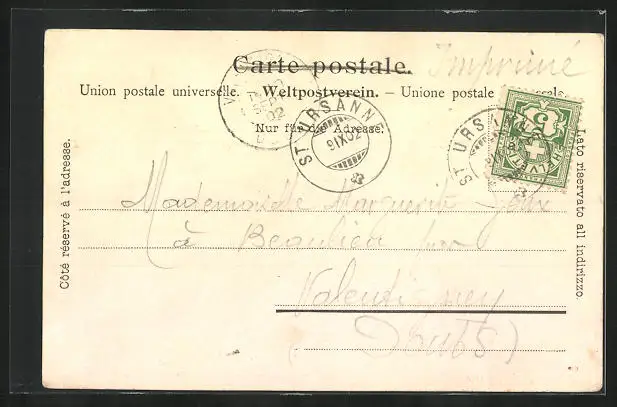 Carte postale.
Imprimé
Union postale universelle. – Weltpostverein. – Unione postale universale.
Nur für die Adresse.
ST URSANNE
9 IX 02
ST URSANNE
5
HELVETIA
02
Côté réservé à l'adresse.
Lato riservato all indirizzo.
Mademoiselle Marguerite
à Beaulieu par
Valentigney
(Doubs)